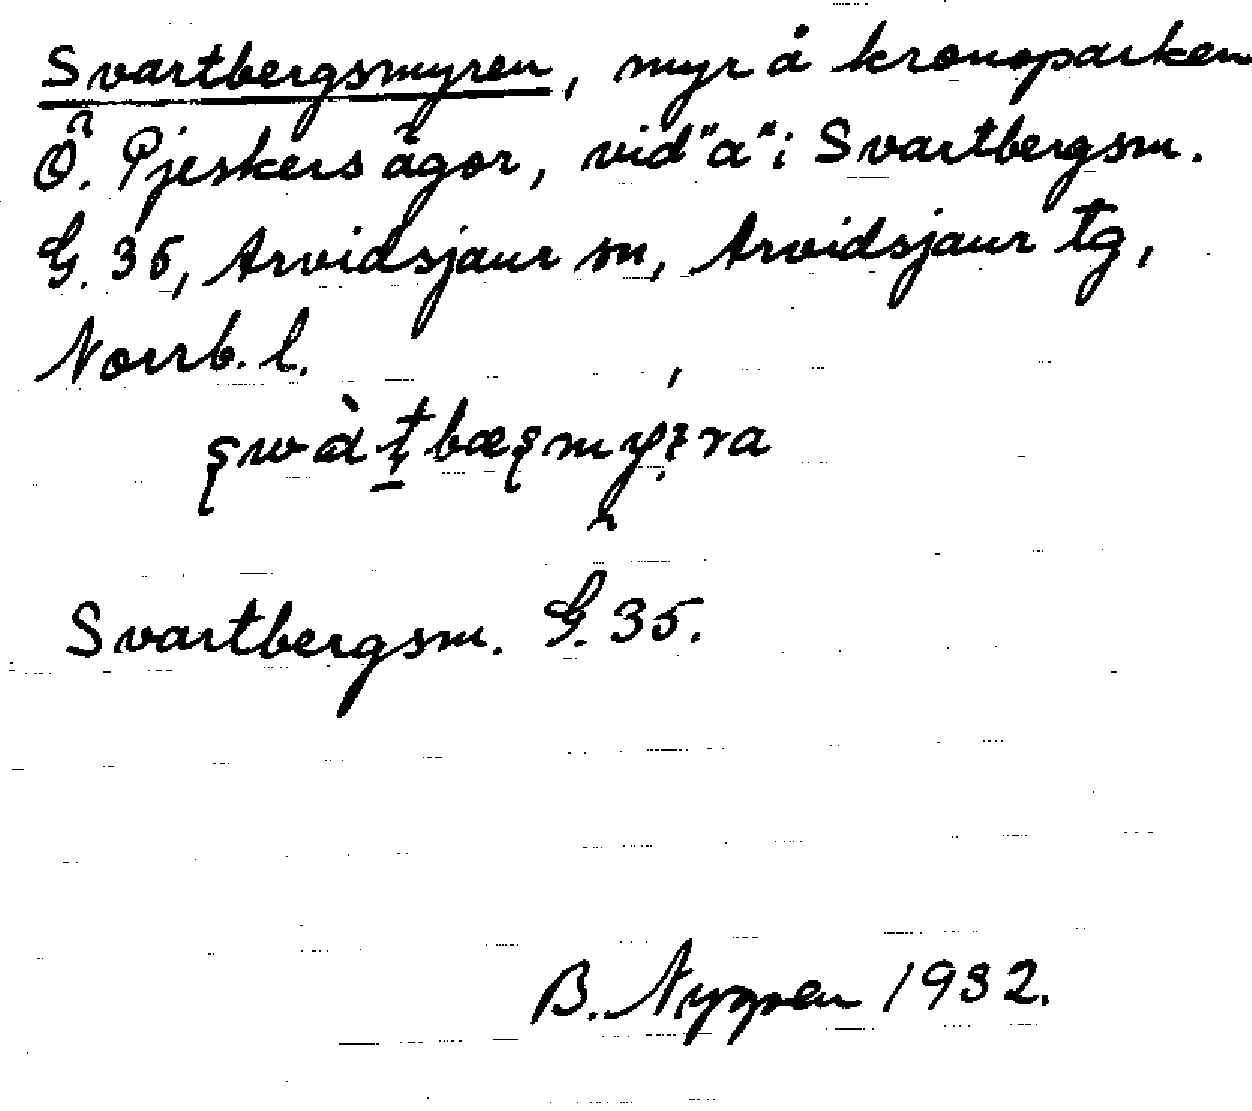 Svartbergsmyren, myr å kronoparken
Ö. Pjeskers ägor, vid "a" i Svartbergsm.
G. 35, Arvidsjaur sn, Arvidsjaur tg,
Norrb. l.
Svartbergsm. G. 35.
B. Nygren 1932.